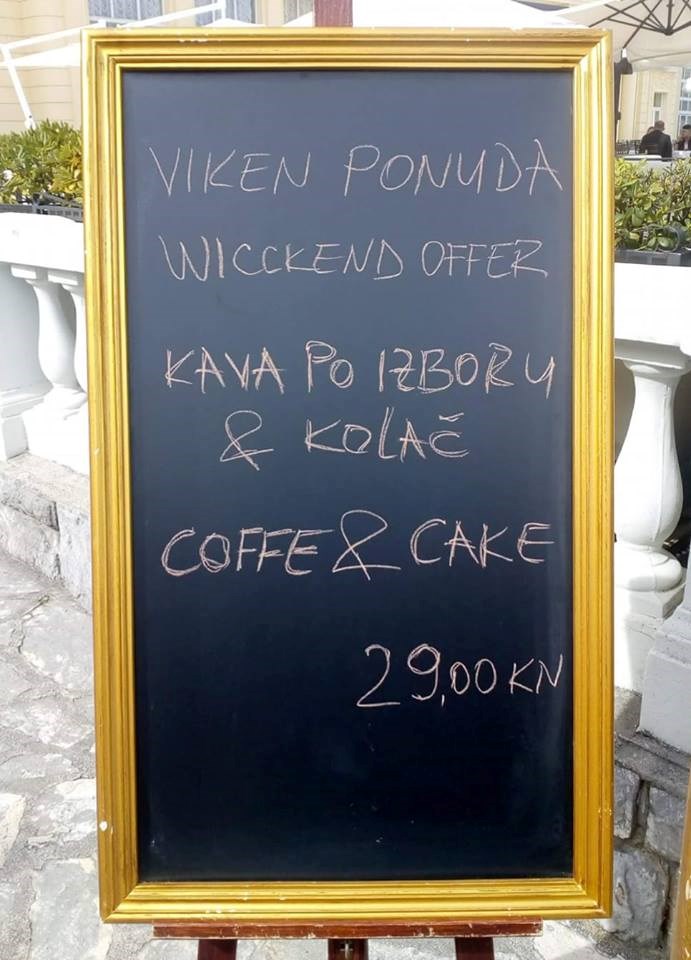 VIKEN PONUDA
WICCKEND OFFER
KAVA PO IZBORU
& KOLAČ
COFFE & CAKE
29,00 KN